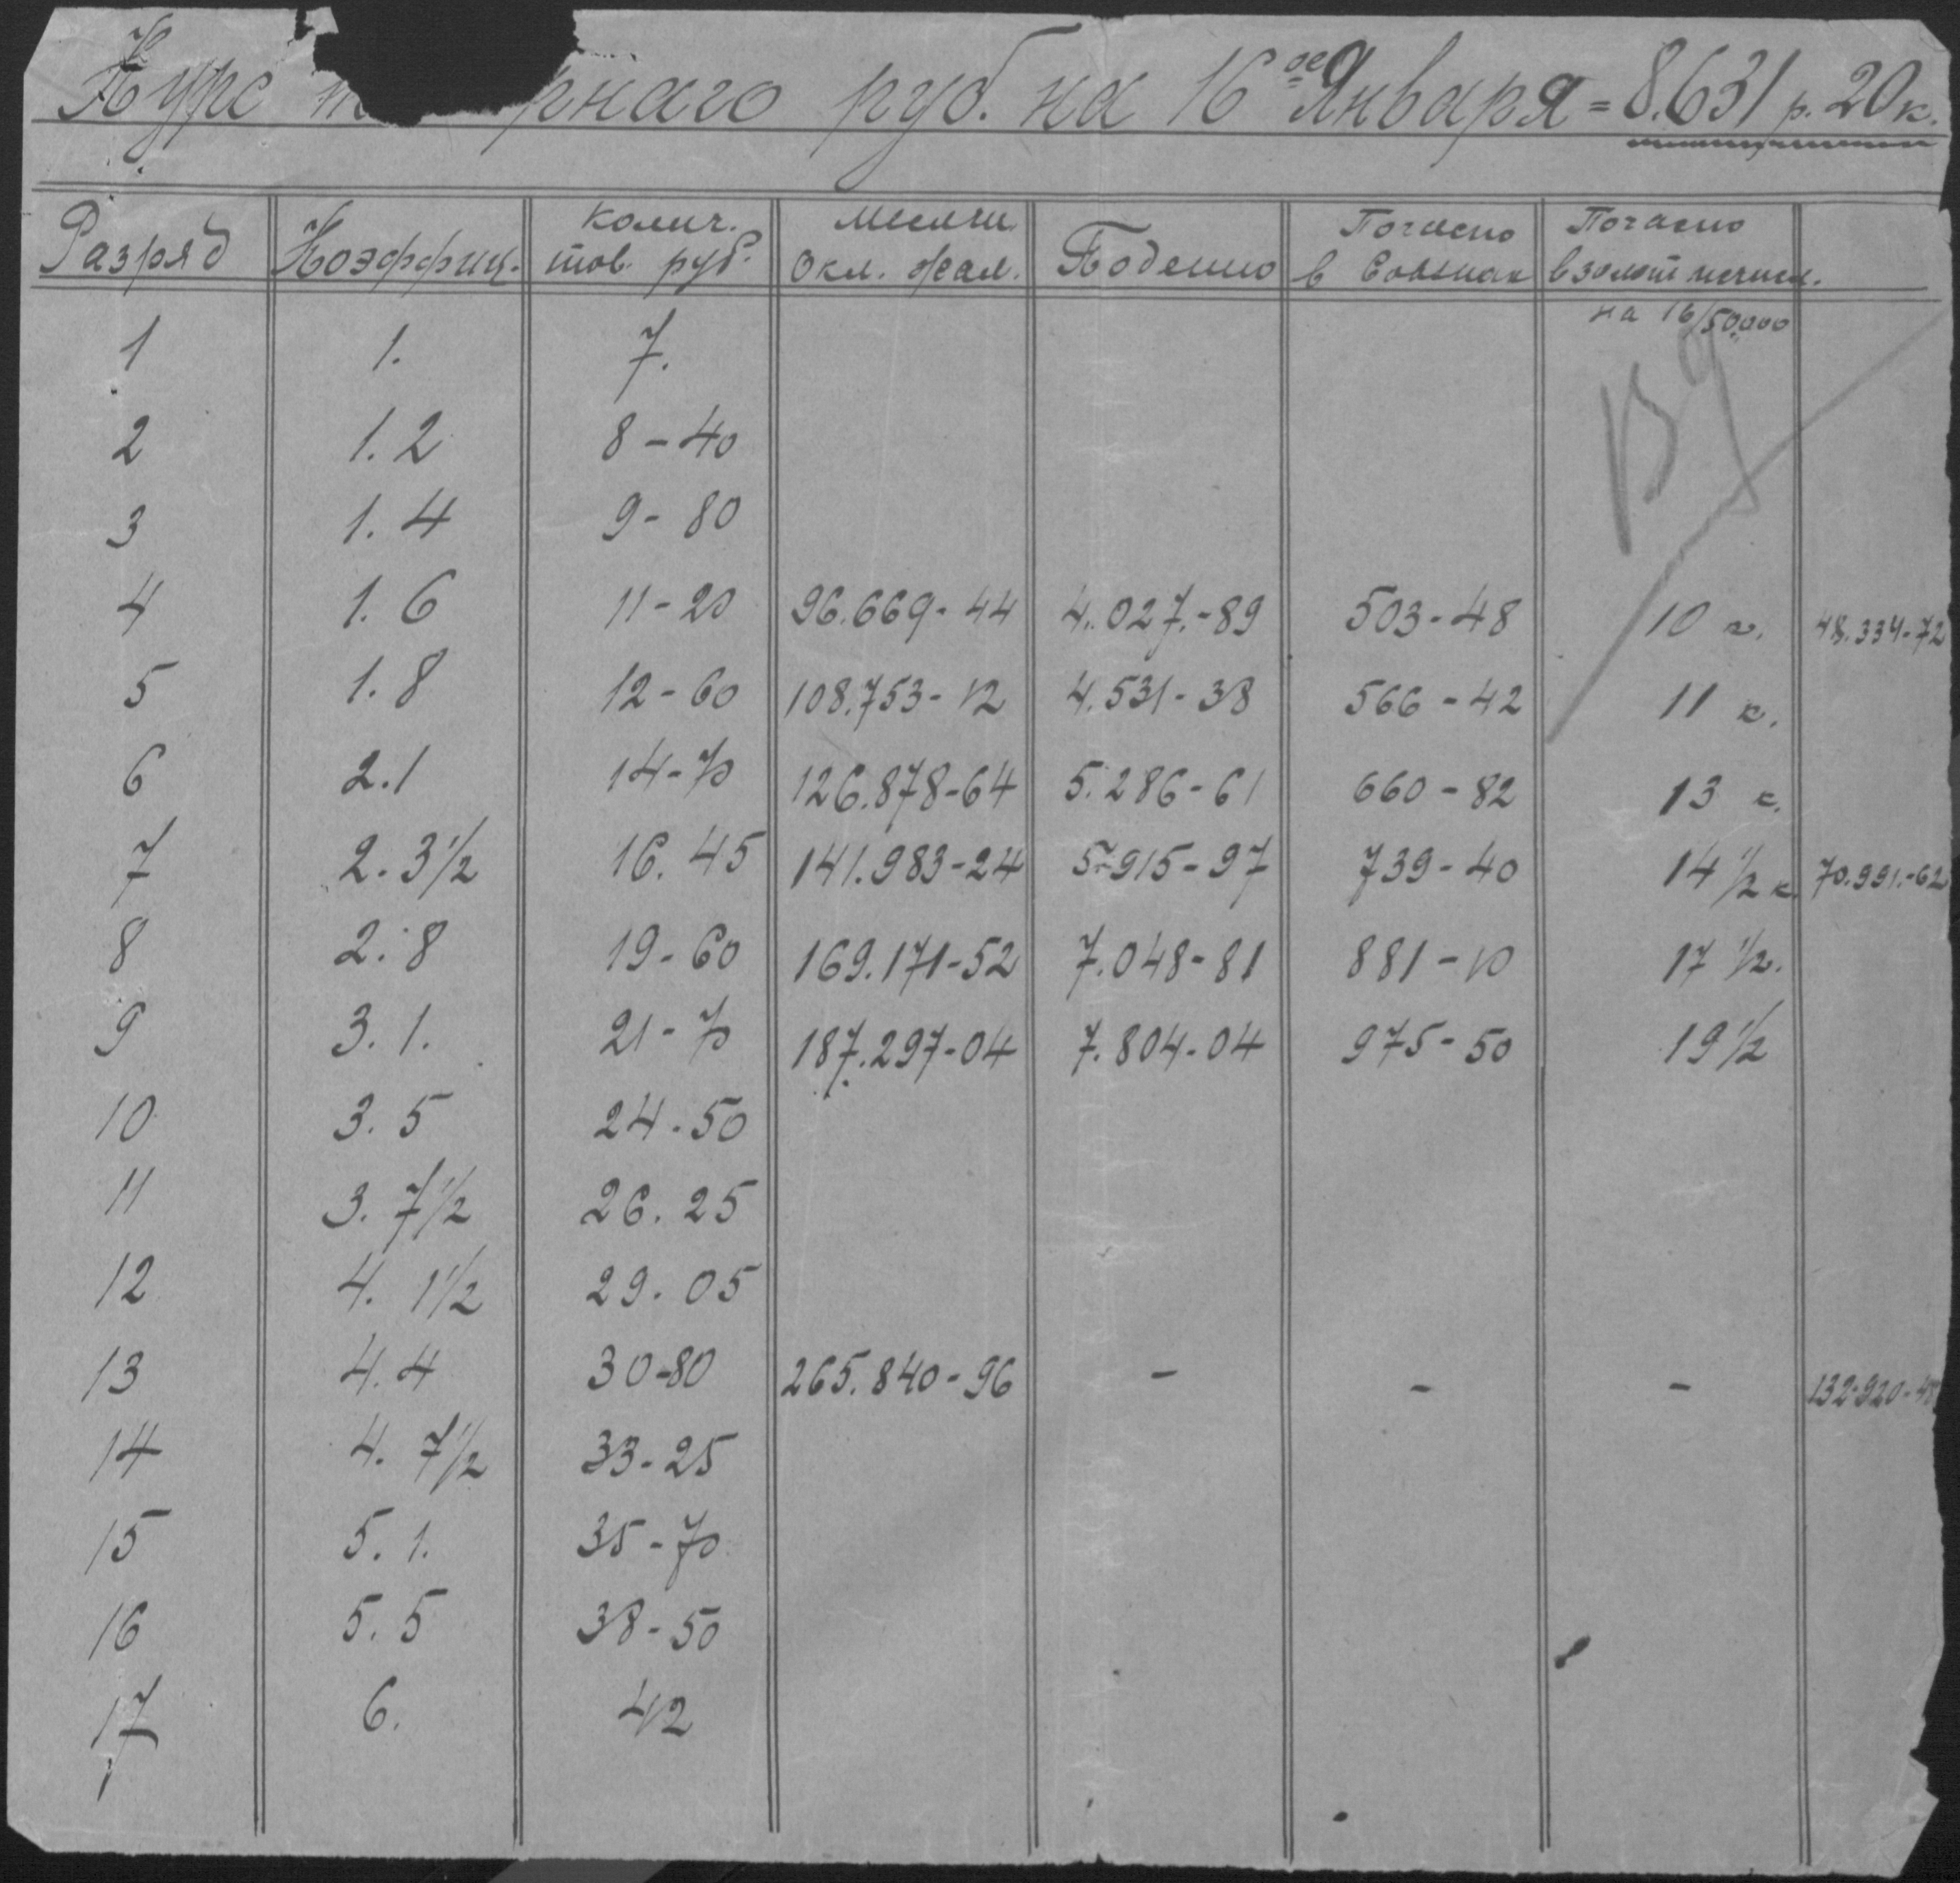 Курс рнаго руб. на 16ое Января = 8.631 р. 20 к.
Разряд Коэффиц. Колич. тов. руб. Месячн. Окл. жал. Поденно Почасно в Совзнак Почасно в золот исчисл.
на 16/50.000
1 1. 7.
2 1.2 8-40
3 1.4 9-80
4 1.6 11-20 96.669-44 4.027.-89 503-48 10 к. 48.334-72
5 1.8 12-60 108.753-12 4.531-38 566-42 11 к.
6 2.1 14-70 126.878-64 5.286-61 660-82 13 к.
7 2.3½ 16.45 141.983-24 5.915-97 739-40 14½ к. 70.991.-62
8 2.8 19-60 169.171-52 7.048-81 881-10 17½.
9 3.1. 21-70 187.297-04 7.804-04 975-50 19½
10 3.5 24.50
11 3.7½ 26.25
12 4.1½ 29.05
13 4.4 30-80 265.840-96 - - - 132.920-48
14 4.7½ 33-25
15 5.1. 35-70
16 5.5 38-50
17 6. 42